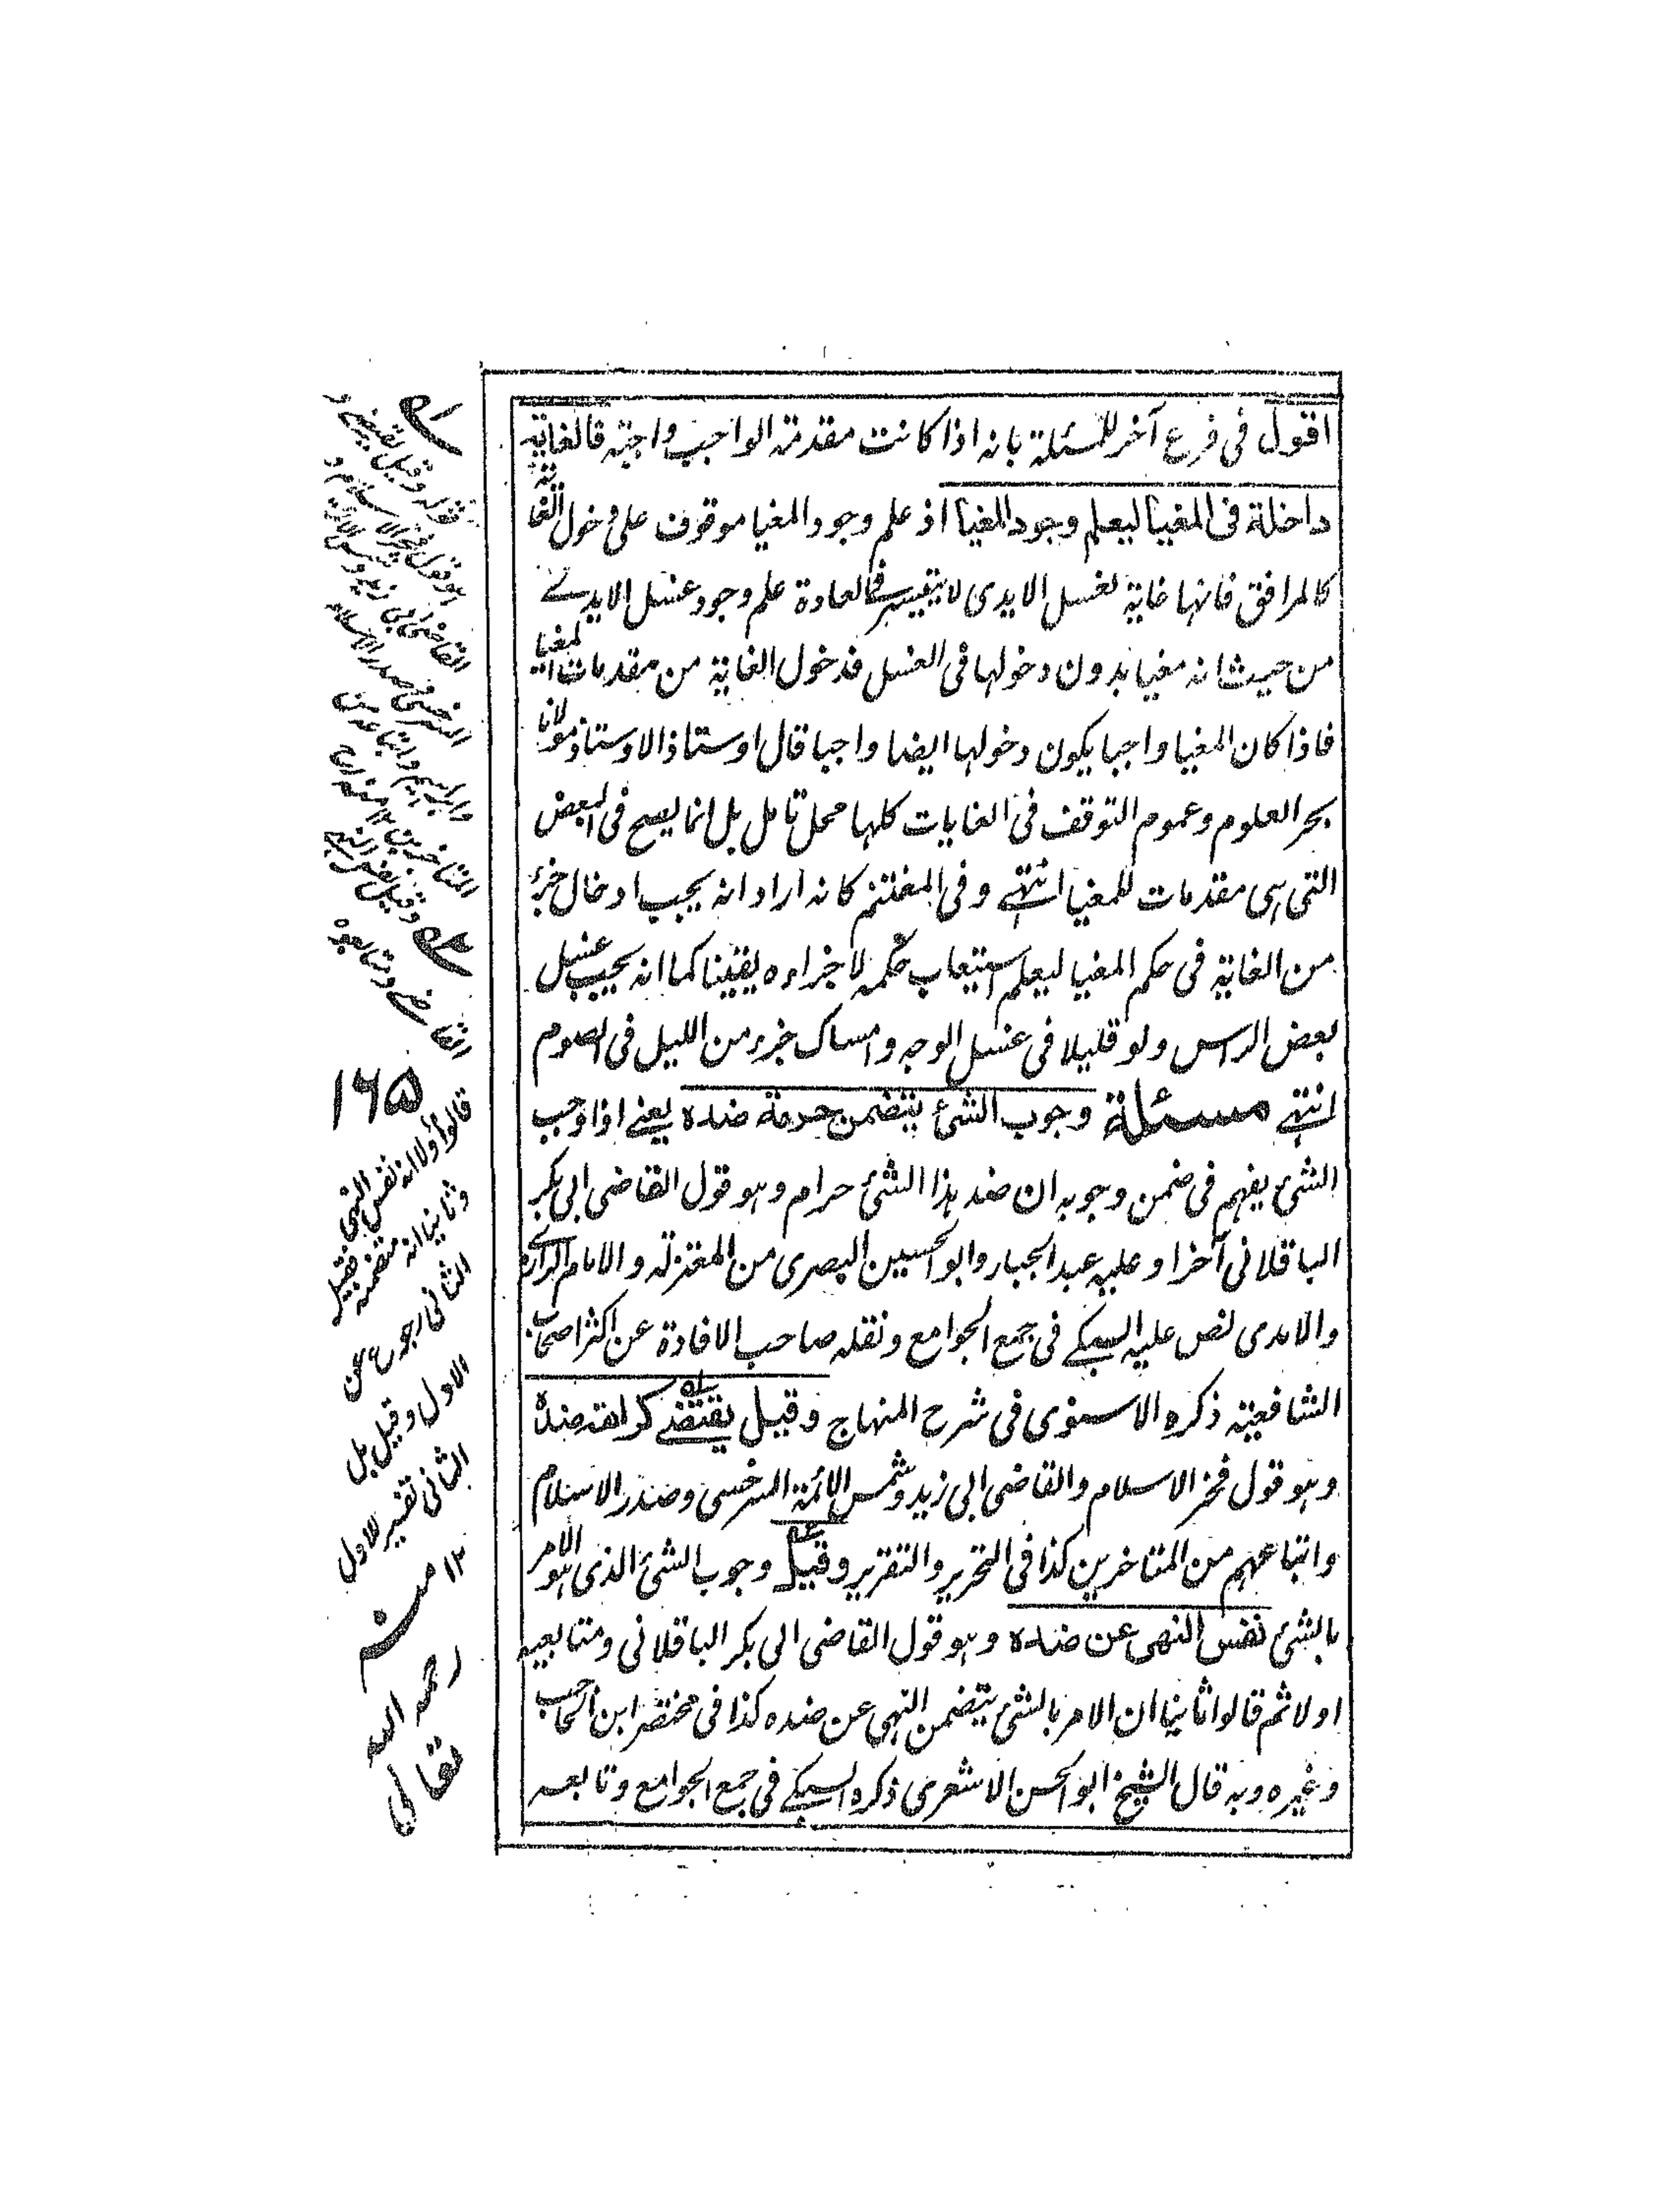 اقول فى فرع آخر للمسئلة بانه اذا كانت مقدمة الواجب واجبة فالغاية
داخلة فى المغيا ليعلم وجود المغيا اذ علم وجود المغيا موقوف على دخول الغاية
كالمرافق فانها غاية لغسل الايدى لا يتيسر فى العادة علم وجود غسل الايدى
من حيث انه مغيا بدون دخولها فى الغسل فدخول الغاية من مقدمات المغيا
فاذا كان المغيا واجبا يكون دخولها ايضا واجبا قال اوستاذ الاوستاذ مولانا
بحر العلوم وعموم التوقف فى الغايات كلها محل تامل بل انما يصح فى البعض
التى هى مقدمات للمغيا انتهى وفى المغتنم كانه اراد انه يجب ادخال جزء
من الغاية فى حكم المغيا ليعلم استيعاب حكمه لاجزاءه يقينا كما انه يجب غسل
بعض الراس ولو قليلا فى غسل الوجه وامساك جزء من الليل فى الصوم
انتهى مسئلة وجوب الشئ يتضمن حرمة ضده يعنى اذا وجب
الشئ يفهم فى ضمن وجوبه ان ضد هذا الشئ حرام وهو قول القاضى ابى بكر
الباقلانى آخرا وعليه عبد الجبار وابو الحسين البصرى من المعتزلة والامام الرازى
والامدى نص عليه السبكى فى جمع الجوامع ونقله صاحب الافادة عن اكثر اصحاب
الشافعية ذكره الاسنوى فى شرح المنهاج وقيل يقتضى كراهة ضده
وهو قول فخر الاسلام والقاضى ابى زيد وشمس الائمة السرخسى وصدر الاسلام
واتباعهم من المتاخرين كذا فى التحرير والتقرير وقيل وجوب الشئ الذى هو الامر
بالشئ نفس النهى عن ضده وهو قول القاضى ابى بكر الباقلانى ومتابعيه
اولا ثم قالوا ثانيا ان الامر بالشئ يتضمن النهى عن ضده كذا فى مختصر ابن الحاجب
وغيره وبه قال الشيخ ابو الحسن الاشعرى ذكره السبكى فى جمع الجوامع وتابعه
قوله وقيل يقتضى
هو قول فخر الاسلام و
القاضى ابى زيد وشمس الائمة
السرخسى وصدر الاسلام
واتباعهم من
المتاخرين
وقيل نفس النهى
القاضى ومتابعوه
١٦٥
قالوا اولا انه نفس النهى
وثانيا انه متضمنه فقيل
الثانى رجوع عن
الاول وقيل بل
الثانى تفسير للاول
١٢ منه
رحمه الله
تعالى